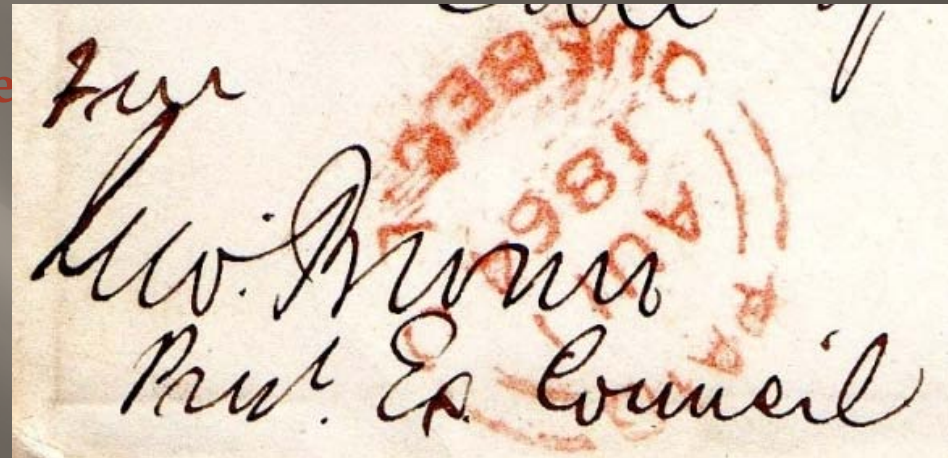 e
Free
Geo. Brown
Prest. Ex. Council
QUEBEC
AU
186
PA